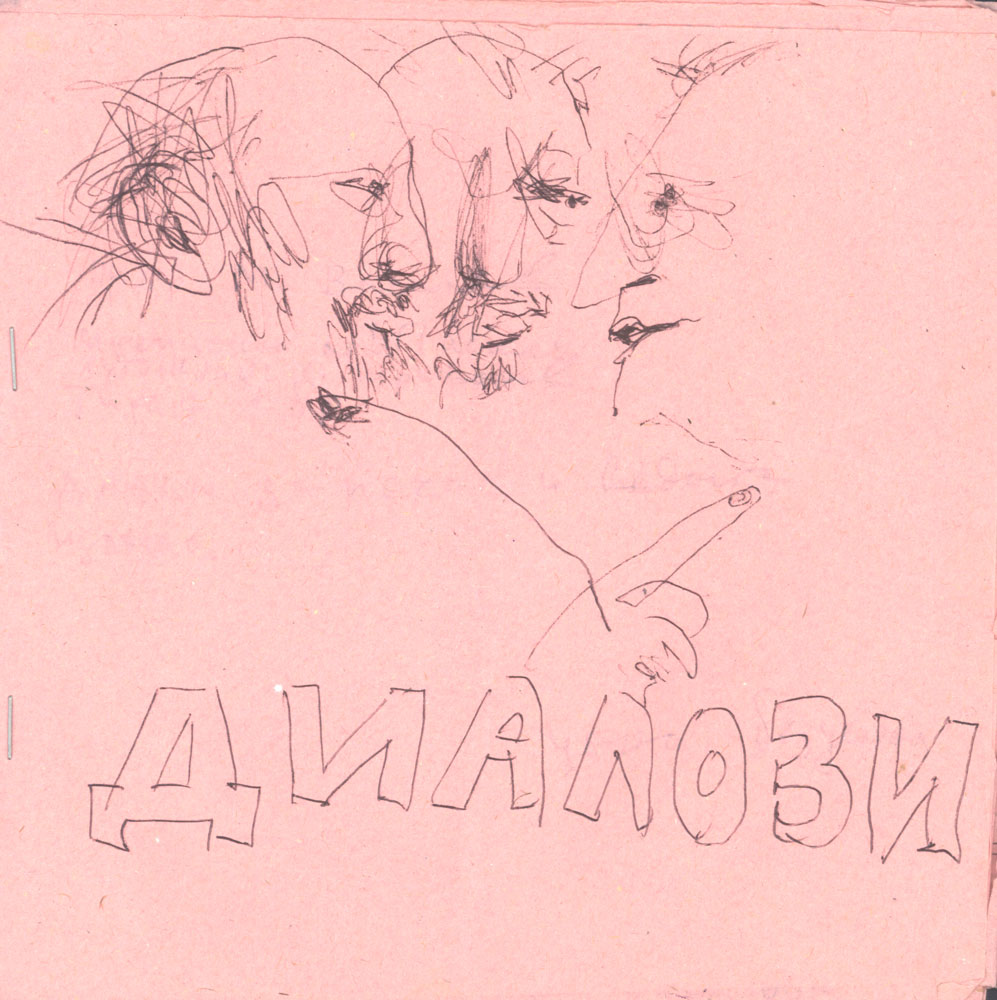 ДИАЛОЗИ